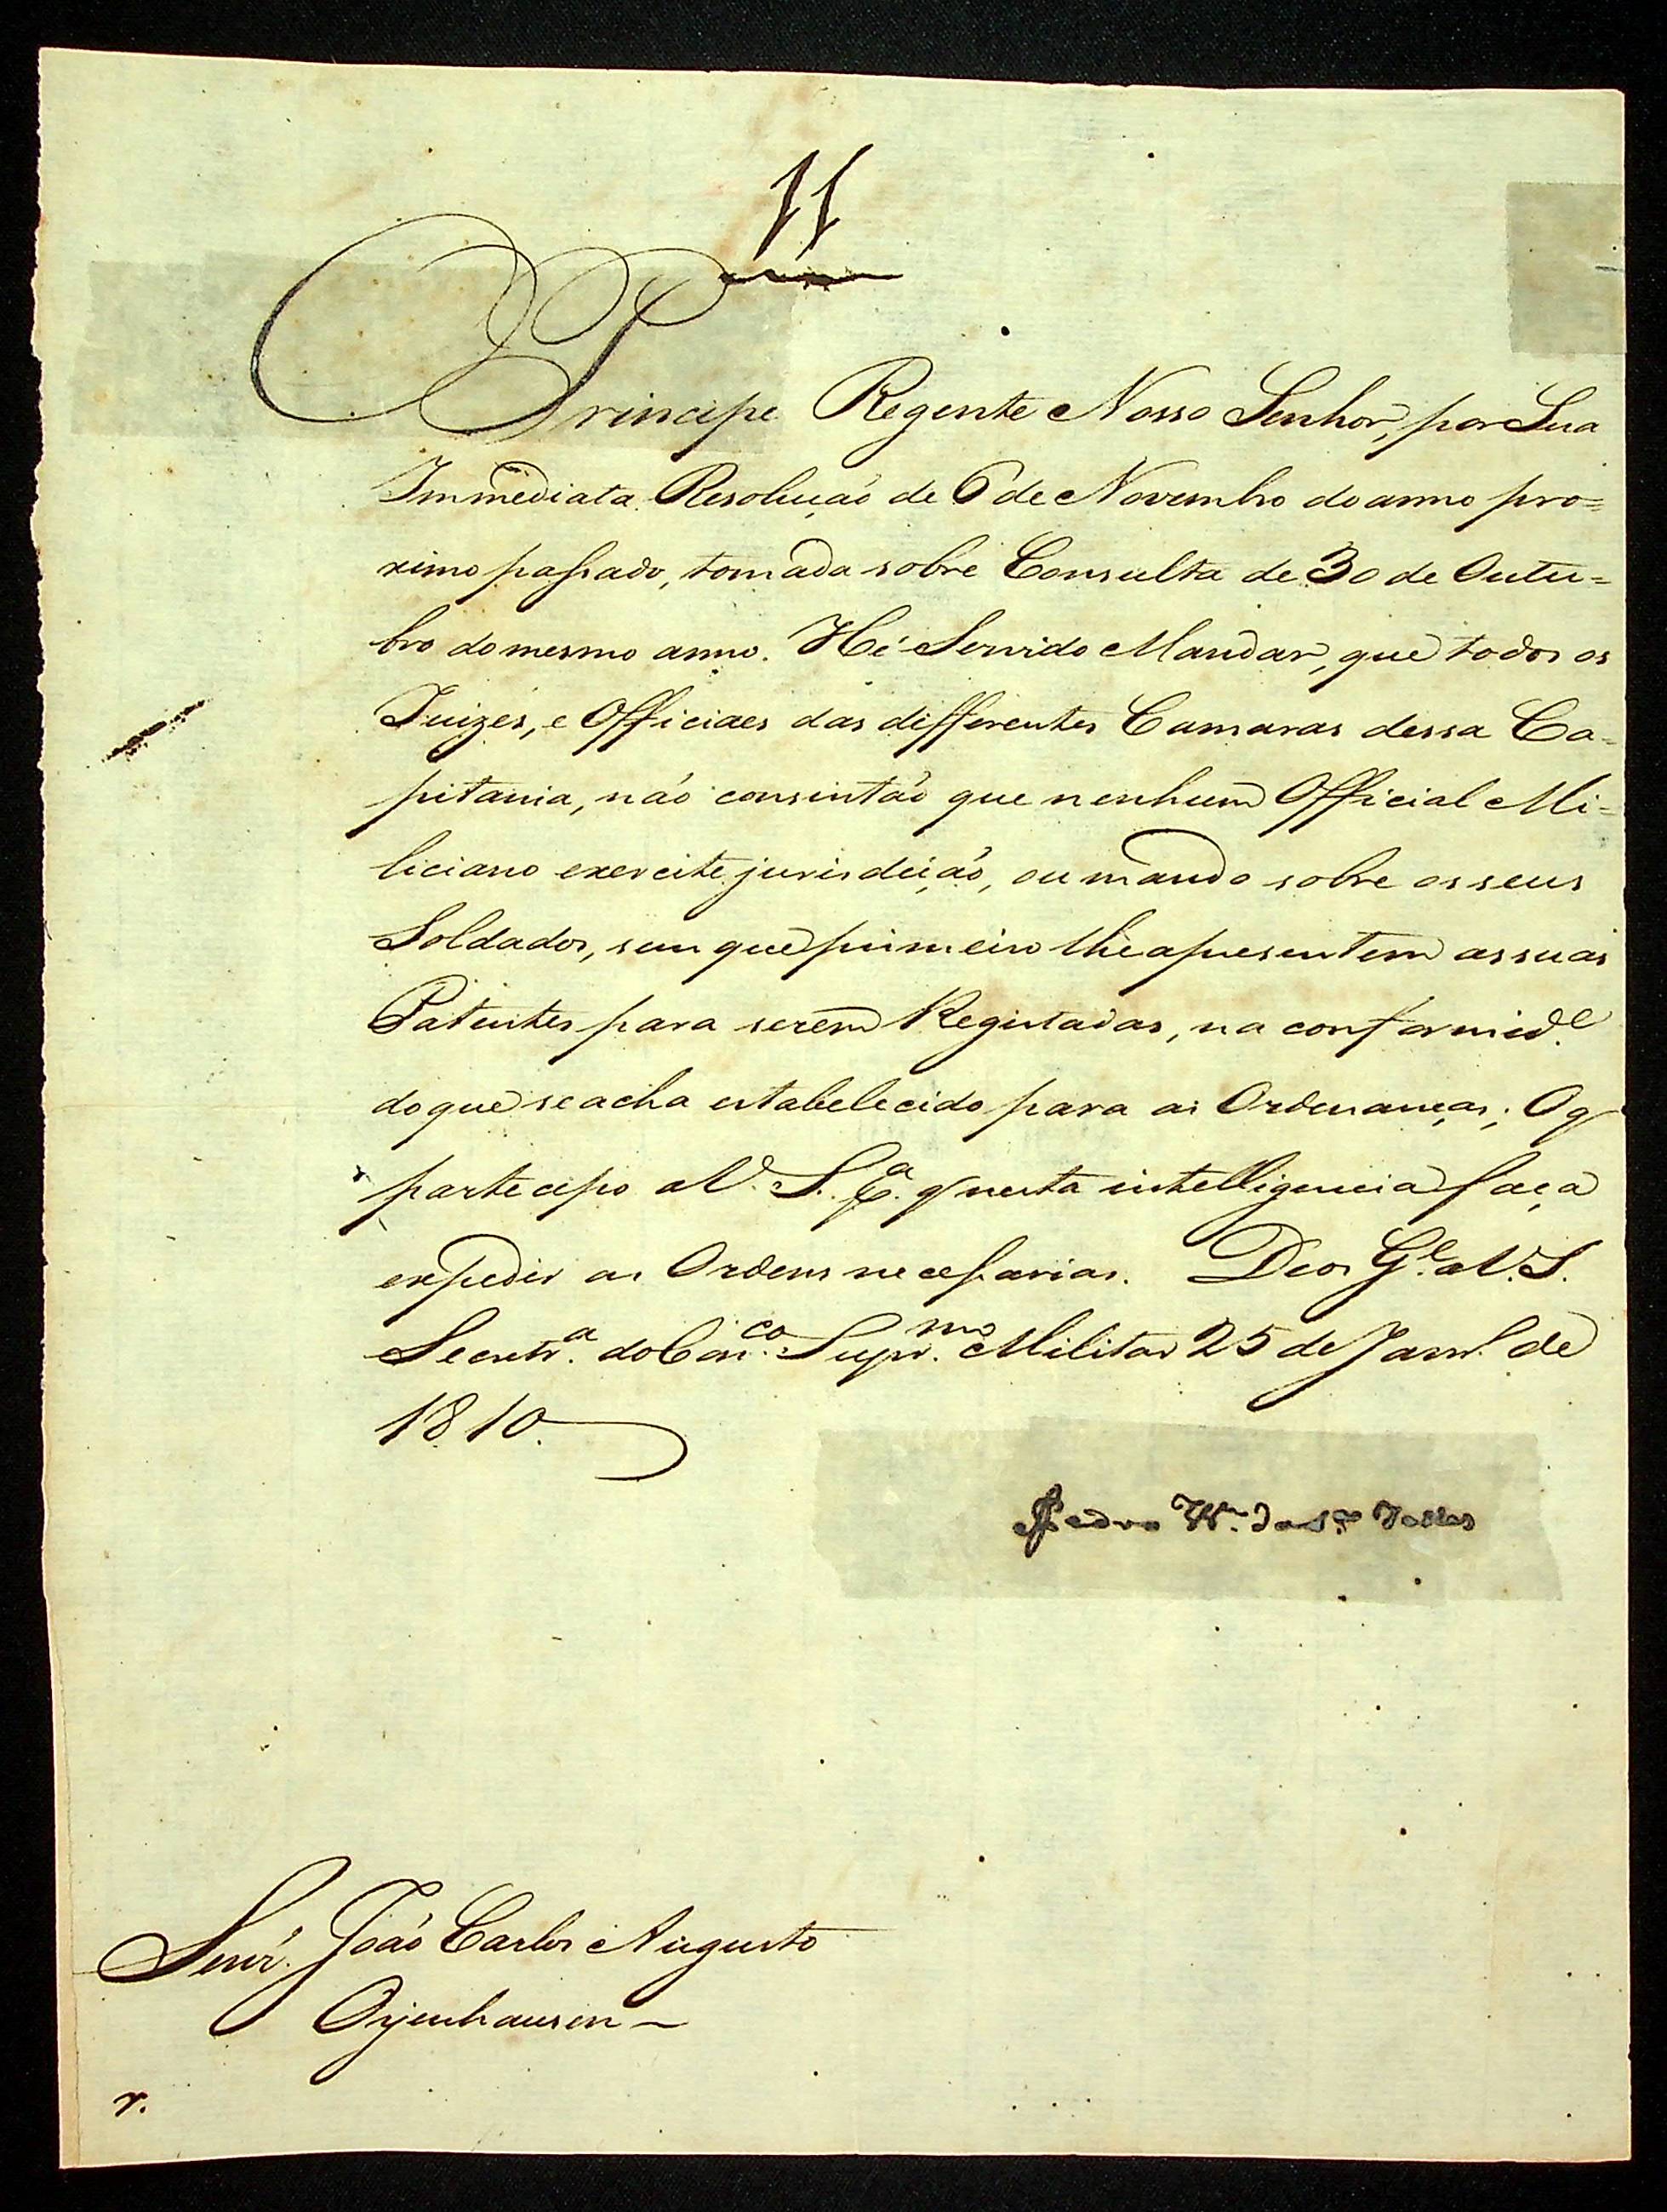 11
O Principe Regente Nosso Senhor, por Sua
Immediata Resoluçaõ de 6 de Novembro do anno pro=
ximo passado, tomada sobre Consulta de 30 de Outu=
bro do mesmo anno. Hé Servido Mandar, que todos os
Juizes, e Officiaes das differentes Camaras dessa Ca=
pitania, naõ consintaõ que nenhum Official Mi=
liciano exercite jurisdiçaõ, ou mando sobre os seus
Soldados, sem que primeiro lhe apresentem as suas
Patentes para serem Registadas, na conformid.e
do que se acha estabelecido para as Ordenanças; O q
partecipo a V. S. P.a q nesta intelligencia faça
expedir as Ordens necessarias. Deos G.e a V. S.
Secretr.a do Con.co Supr.mo Militar 25 de Janr.o de
1810.
Pedro
Senr. Joaõ Carlos Augusto
Oyenhausen
r.